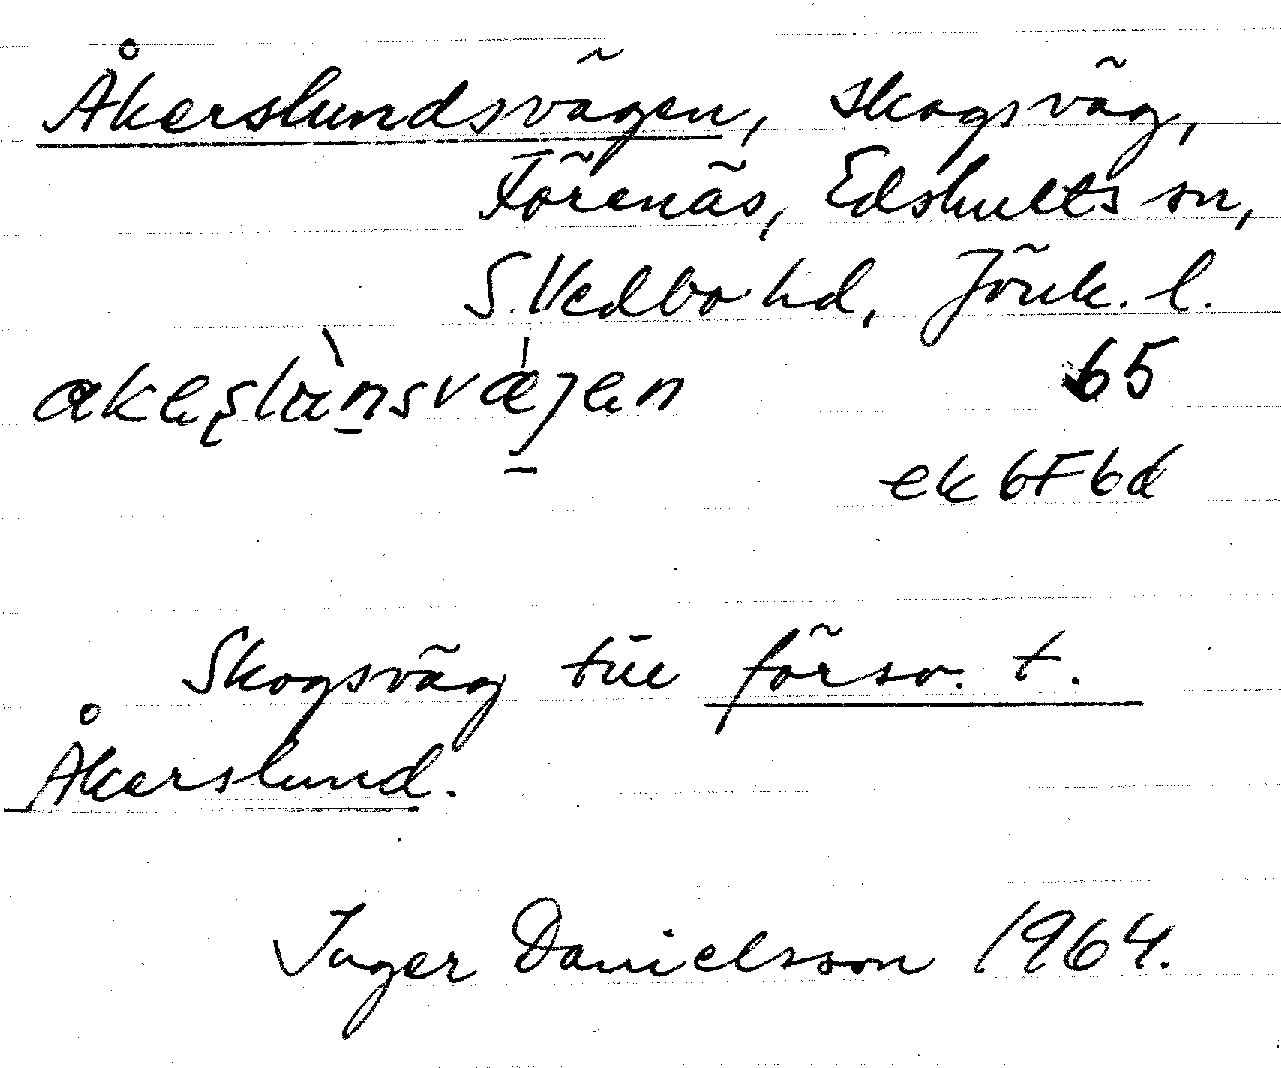 Åkerslundsvägen, skogsväg,
Förenäs, Edshults sn,
S. Vedbo hd, Jönk. l.
65
ek 6F6d
Skogsväg till försv. t.
Åkerslund.
Inger Danielsson 1964.